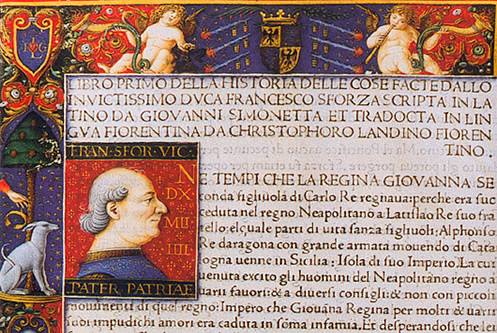 LIBRO PRIMO DELLA HISTORIA DELLE COSE FACTE DALLO
INVICTISSIMO DVCA FRANCESCO SFORZA SCRIPTA IN LA
TINO DA GIOVANNI SIMONETTA ET TRADOCTA IN LIN
GVA FIORENTINA DA CHRISTOPHORO LANDINO FIOREN
TINO.
FRAN·SFOR·VIC
PATER PATRIAE
N
DX
MLI
IIII
E TEMPI CHE LA REGINA GIOVANNA SE
conda figliuola di Carlo Re regnaua: perche era suc
ceduta nel regno Neapolitano a Latislao Re suo fra
tello; el quale parti di uita sanza figliuoli: Alphonso
Re daragona con grande armata mouendo di Cata
logna uenne in Sicilia: Isola di suo Imperio. La cu
uenuta excito gli huomini del Neapolitano regno a
uarii fauori: & a diuersi consigli: & non con piccoli
mouimenti di quel regno: Impero che Giouana Regina per molti & uarii
suoi impudichi amori era caduta in soma infamia. Et desperandosi che